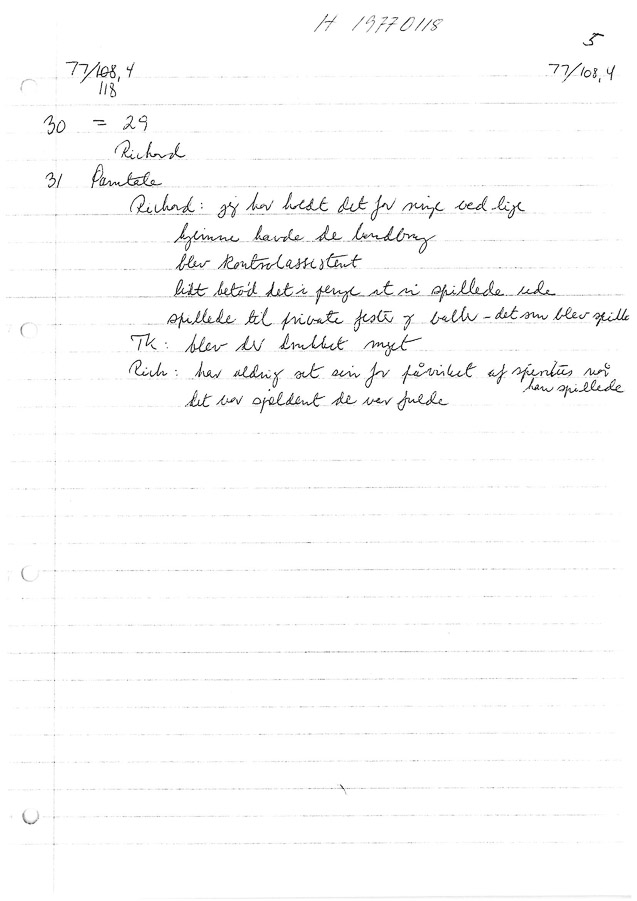 H 19770118
5
77/108,4
118
77/108,4
30 = 29
Richard
31 Samtale
Richard: jeg har holdt det for mig ved lige
hjemme havde de landbrug
blev kontrolassistent
lidt betød det i penge at vi spillede ude
spillede til private fester og baller - det som blev spille
TK: blev der drukket meget
Rich: har aldrig set ein for påvirket af spiritus når
han spillede
det var sjældent de var fulde